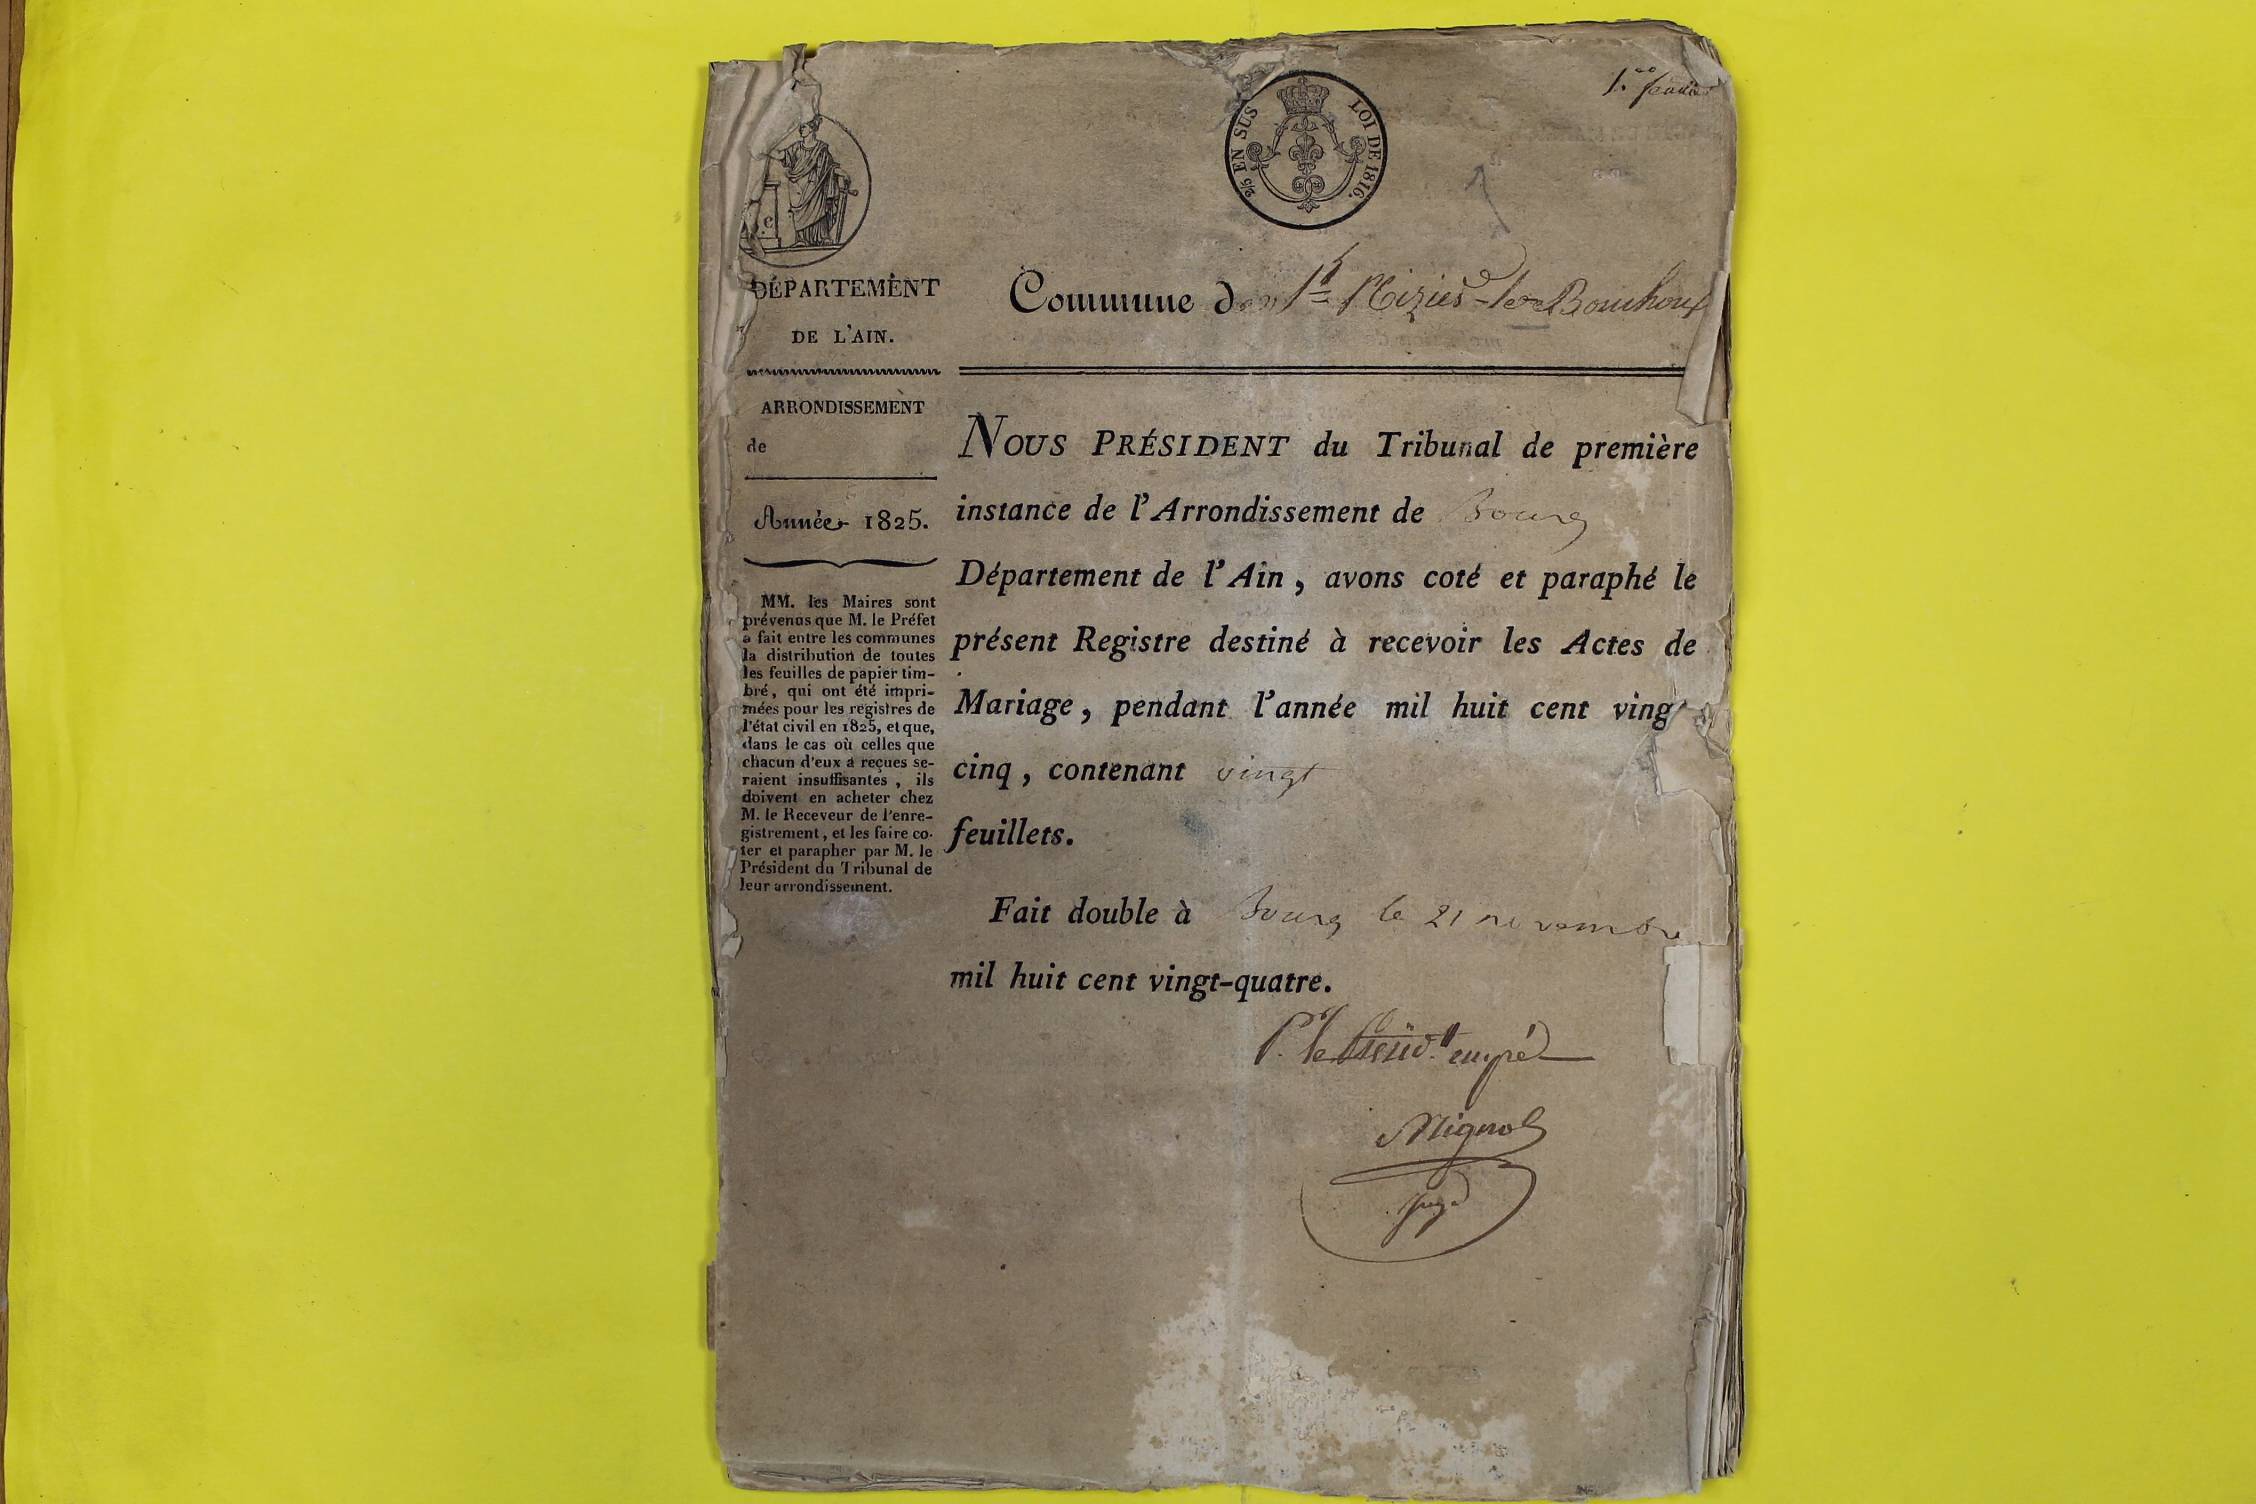 1.er feuillet
2/5 EN SUS LOI DE 1816.
DÉPARTEMENT
DE L'AIN.
Commune de St Nizier-le-Bouchoux
ARRONDISSEMENT
de
Année 1825.
MM. les Maires sont
prévenus que M. le Préfet
a fait entre les communes
la distribution de toutes
les feuilles de papier tim-
bré, qui ont été impri-
mées pour les registres de
l'état civil en 1825, et que,
dans le cas où celles que
chacun d'eux a reçues se-
raient insuffisantes, ils
doivent en acheter chez
M. le Receveur de l'enre-
gistrement, et les faire co-
ter et parapher par M. le
Président du Tribunal de
leur arrondissement.
NOUS PRÉSIDENT du Tribunal de première
instance de l'Arrondissement de Bourg
Département de l'Ain, avons coté et paraphé le
présent Registre destiné à recevoir les Actes de
Mariage, pendant l'année mil huit cent ving
cinq, contenant vingt
feuillets.
Fait double à Bourg le 21 novembre
mil huit cent vingt-quatre.
P. le Présid.t empé
Mignot
Juge